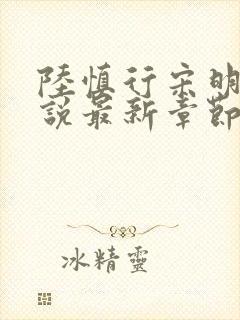 陸慎行宋明
說最新章節
冰精靈